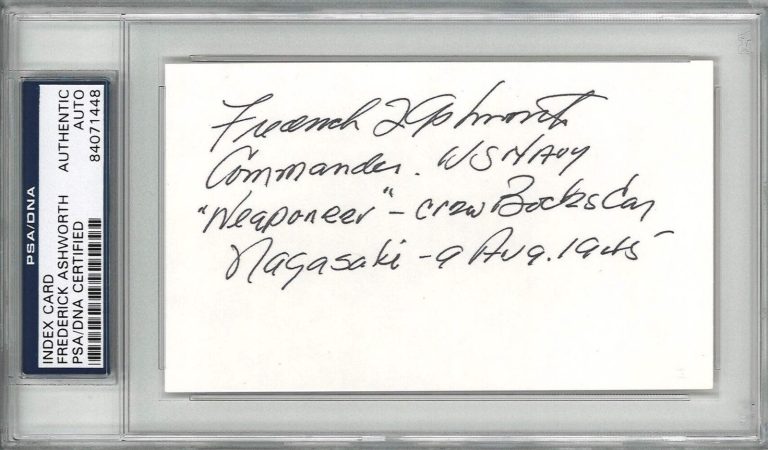 PSA/DNA
INDEX CARD
FREDERICK ASHWORTH
PSA/DNA CERTIFIED
AUTHENTIC
AUTO
84071448
Frederick L Ashworth
Commander. US Navy
"Weaponeer" - crew Bocks Car
Nagasaki - 9 Aug. 1945